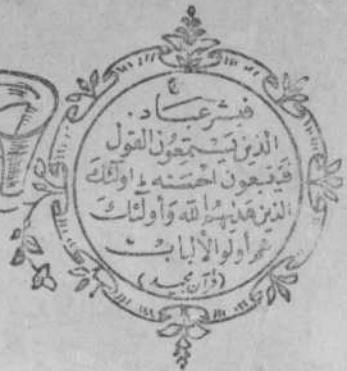 فبشر عباد
الذین یستمعون القول
فیتبعون احسنه اولئك
الذین هدیهم الله و اولئك
هم اولو الالباب
(قرآن مجید)